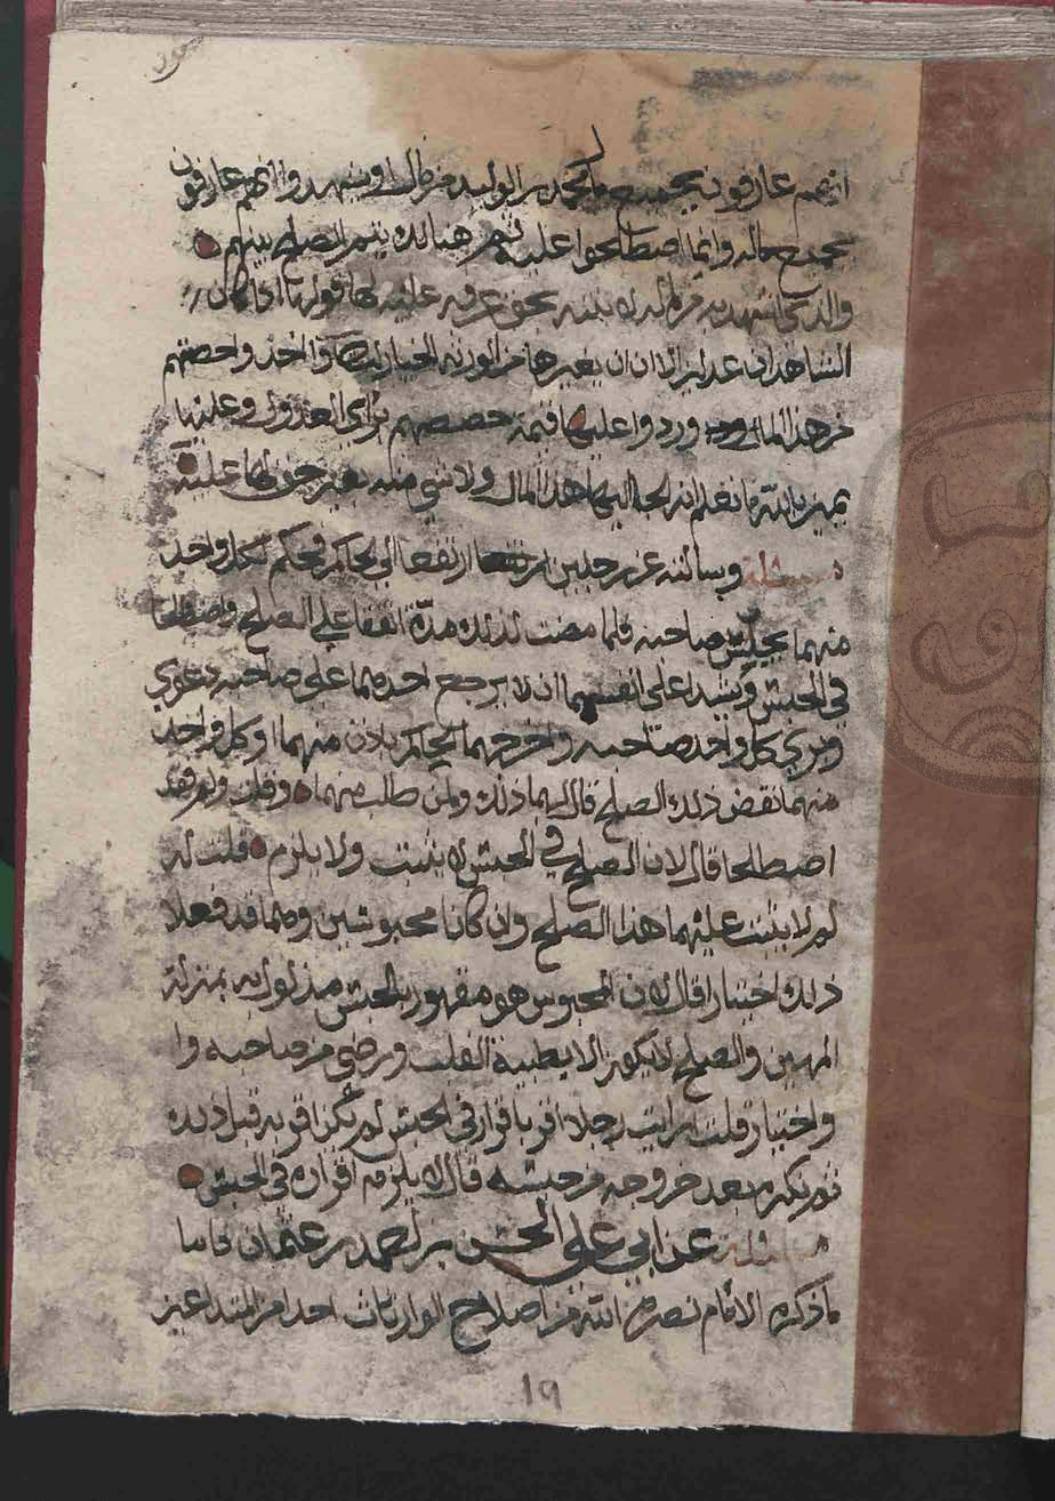 انهم عارفون بجميع ما لمحمد بن الوليد من مال او يشهدوا انهم عارفون
بجميع ماله وانما اصطلحوا عليه فهنالك يتم الصلح بينهم
والذي اشهد به من ماله لابنته بحق عرفه عليه لها فهو لها اذا كان
الشاهدان عدلين الا ان لغيرها من الورثة الخيار ان شاءوا اخذوا حصتهم
من هذا المال وردوا عليها قيمة حصصهم برأي العدول وعليها
يمين بالله ما نعلم انه الجا اليها هذا المال ولا شي منه بغير حق لها عليه
مسئلة وسألته عن رجلين ارتفعا الى الحاكم فحكم لكل واحد
منهما بحبس صاحبه فلما مضت لذلك مدة اتفقا على الصلح واصطلحا
في الحبس واشهدا على انفسهما ان لا يرجع احدهما على صاحبه بدعوى
وبري كل واحد صاحبه واخرجهما الحاكم باذن منهما او كل واحد
منهما نقض ذلك الصلح قال لهما ذلك ولمن طلب منهما وقلت ولم وقد
اصطلحا قال لان الصلح في الحبس لا يثبت ولا يلزم قلت له
لم لا يثبت عليهما هذا الصلح وان كانا محبوسين وهما قد فعلا
ذلك اختيارا قال لان المحبوس هو مقهور بالحبس مذلول به بمنزلة
المهين والصلح لا يكون الا بطيبة القلب ورضى من صاحبه وا
واختيار قلت ارايت رجلا اقر باقرار في الحبس لم يكن اقر به قبل ذلك
ثم نكره بعد خروجه من حبسه قال لا يلزمه اقراره في الحبس
مسئلة عن ابي علي الحسن بن احمد بن عثمان فاما
ما ذكره الامام نصره الله من اصلاح الوارثات احدا من المتداعين
١٩